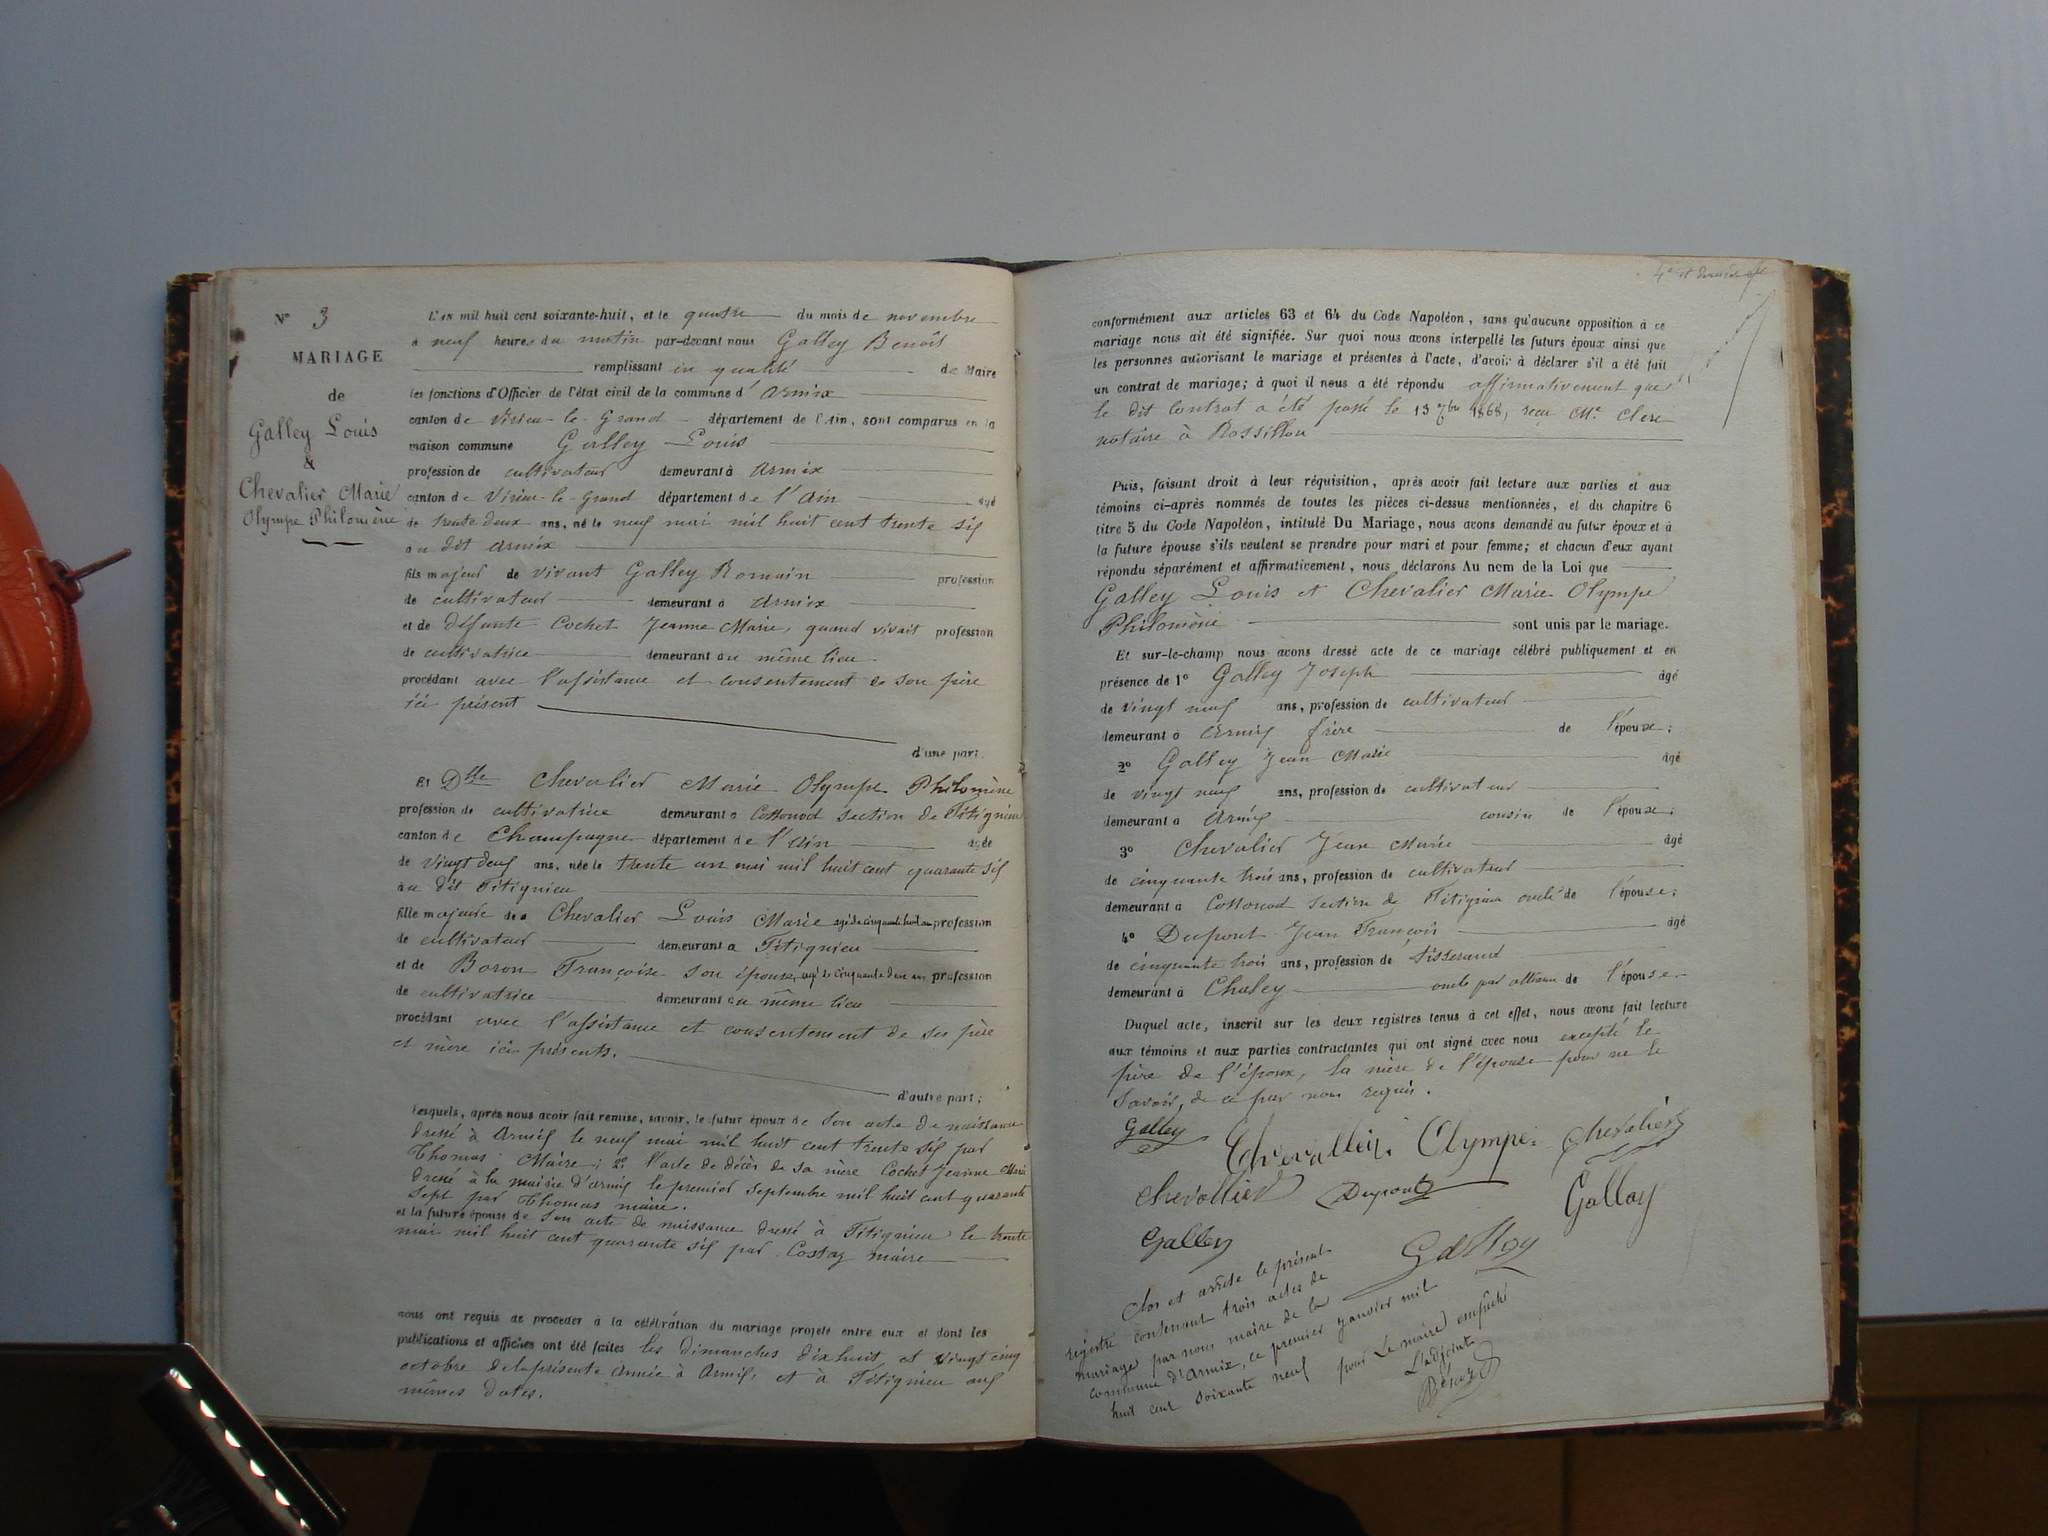 N° 3
MARIAGE
de
Galley Louis
&
Chevalier Marie
Olympe Philomène
L'an mil huit cent soixante-huit, et le quatre du mois de novembre
à neuf heures du matin par-devant nous Galley Benoît
remplissant en qualité de Maire
les fonctions d'Officier de l'état civil de la commune d'Armix
canton de Virieu-le-Grand département de l'Ain, sont comparus en la
maison commune Galley Louis
profession de cultivateur demeurant à Armix
canton de Virieu-le-Grand département de l'Ain âgé
de trente deux ans, né le neuf mai mil huit cent trente six
au dit Armix
fils majeur de vivant Galley Romain profession
de cultivateur demeurant à Armix
et de défunte Cochet Jeanne Marie, quand vivait profession
de cultivatrice demeurant au même lieu
procédant avec l'assistance et consentement de son père
ici présent
d'une part.
Et Dlle Chevalier Marie Olympe Philomène
profession de cultivatrice demeurant à Cossonod section de Titignieu
canton de Champagne département de l'Ain âgée
de vingt deux ans, née le trente un mai mil huit cent quarante six
au dit Titignieu
fille majeure de Chevalier Louis Marie âgé de cinquante huit ans profession
de cultivateur demeurant à Titignieu
et de Boron Françoise son épouse, âgé de cinquante deux ans profession
de cultivatrice demeurant au même lieu
procédant avec l'assistance et consentement de ses père
et mère ici présents.
d'autre part;
Lesquels, après nous avoir fait remise, savoir, le futur époux de son acte de naissance
dressé à Armix le neuf mai mil huit cent trente six par
Thomas Maire; 2° l'acte de décès de sa mère Cochet Jeanne Marie
dressé à la mairie d'Armix le premier septembre mil huit cent quarante
sept par Thomas maire.
et la future épouse de son acte de naissance dressé à Titignieu le trente
mai mil huit cent quarante six par Costaz maire
nous ont requis de procéder à la célébration du mariage projeté entre eux et dont les
publications et affiches ont été faites les dimanches dix huit et vingt cinq
octobre de la présente année à Armix, et à Titignieu aux
mêmes dates.
4e et
conformément aux articles 63 et 64 du Code Napoléon, sans qu'aucune opposition à ce
mariage nous ait été signifiée. Sur quoi nous avons interpellé les futurs époux ainsi que
les personnes autorisant le mariage et présentes à l'acte, d'avoir à déclarer s'il a été fait
un contrat de mariage; à quoi il nous a été répondu affirmativement que
le dit contrat a été passé le 13 7bre 1868, reçu Me Clerc
notaire à Rossillon
Puis, faisant droit à leur réquisition, après avoir fait lecture aux parties et aux
témoins ci-après nommés de toutes les pièces ci-dessus mentionnées, et du chapitre 6
titre 5 du Code Napoléon, intitulé Du Mariage, nous avons demandé au futur époux et à
la future épouse s'ils veulent se prendre pour mari et pour femme; et chacun d'eux ayant
répondu séparément et affirmativement, nous déclarons Au nom de la Loi que
Galley Louis et Chevalier Marie Olympe
Philomène sont unis par le mariage.
Et sur-le-champ nous avons dressé acte de ce mariage célébré publiquement et en
présence de 1° Galley Joseph âgé
de vingt neuf ans, profession de cultivateur
demeurant à Armix frère de l'époux;
2° Galley Jean Marie âgé
de vingt neuf ans, profession de cultivateur
demeurant à Armix cousin de l'époux;
3° Chevalier Jean Marie âgé
de cinquante trois ans, profession de cultivateur
demeurant à Cossonod section de Titignieu oncle de l'épouse;
4° Dupont Jean François âgé
de cinquante trois ans, profession de tisserand
demeurant à Chaley oncle par alliance de l'épouse.
Duquel acte, inscrit sur les deux registres tenus à cet effet, nous avons fait lecture
aux témoins et aux parties contractantes qui ont signé avec nous excepté le
père de l'époux, la mère de l'épouse pour ne le
savoir, de ce par nous requis.
Galley Chevallier Olympe Chevalier
Chevallier Dupont Galley
Galley Galley
Clos et arrêté le présent
registre contenant trois actes de
mariage par nous maire de la
commune d'Armix, ce premier janvier mil
huit cent soixante neuf
pour Le maire empêché
L'adjoint